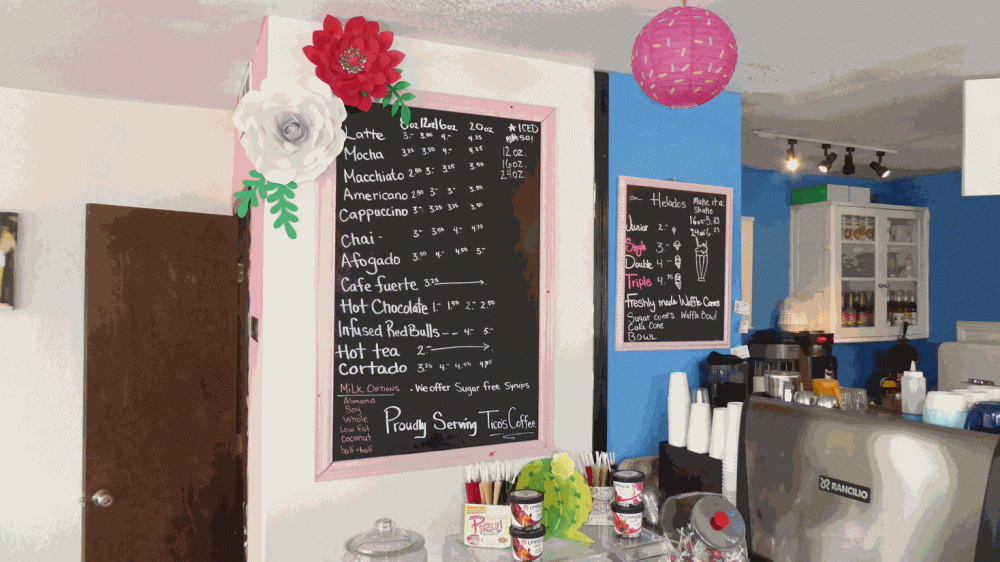 8oz 12oz 16oz 20oz ★ICED
Latte 3.- 3.50 4.- 4.25
Mocha 3.25 3.50 4.- 4.75 12oz.
16oz.
Macchiato 2.50 3.- 3.25 3.50 24oz.
Americano 2.50 3- 3- 3.50
Cappuccino 3- 3.25 3.75 3.50
Chai- 3- 3.50 4- 4.25
Afogado 3.50 4.- 4.50 5.-
Cafe fuerte 3.25
Hot Chocolate 1.- 1.50 2.- 2.50
Infused RedBulls -- 4- 5-
Hot tea 2.-
Cortado 3.25 4.- 4.50
Milk Options . We offer Sugar free Syrups
Almond
Soy
Whole
Low fat
Coconut
half+half
Proudly Serving Tico's Coffee
Helados Make it a
Shake
Junior 2.-
Single 3.-
Double 4.-
Triple 4.75
Freshly made Waffle Cones
Sugar cones Waffle Bowl
Cake Cone
BOWL
RANCILIO